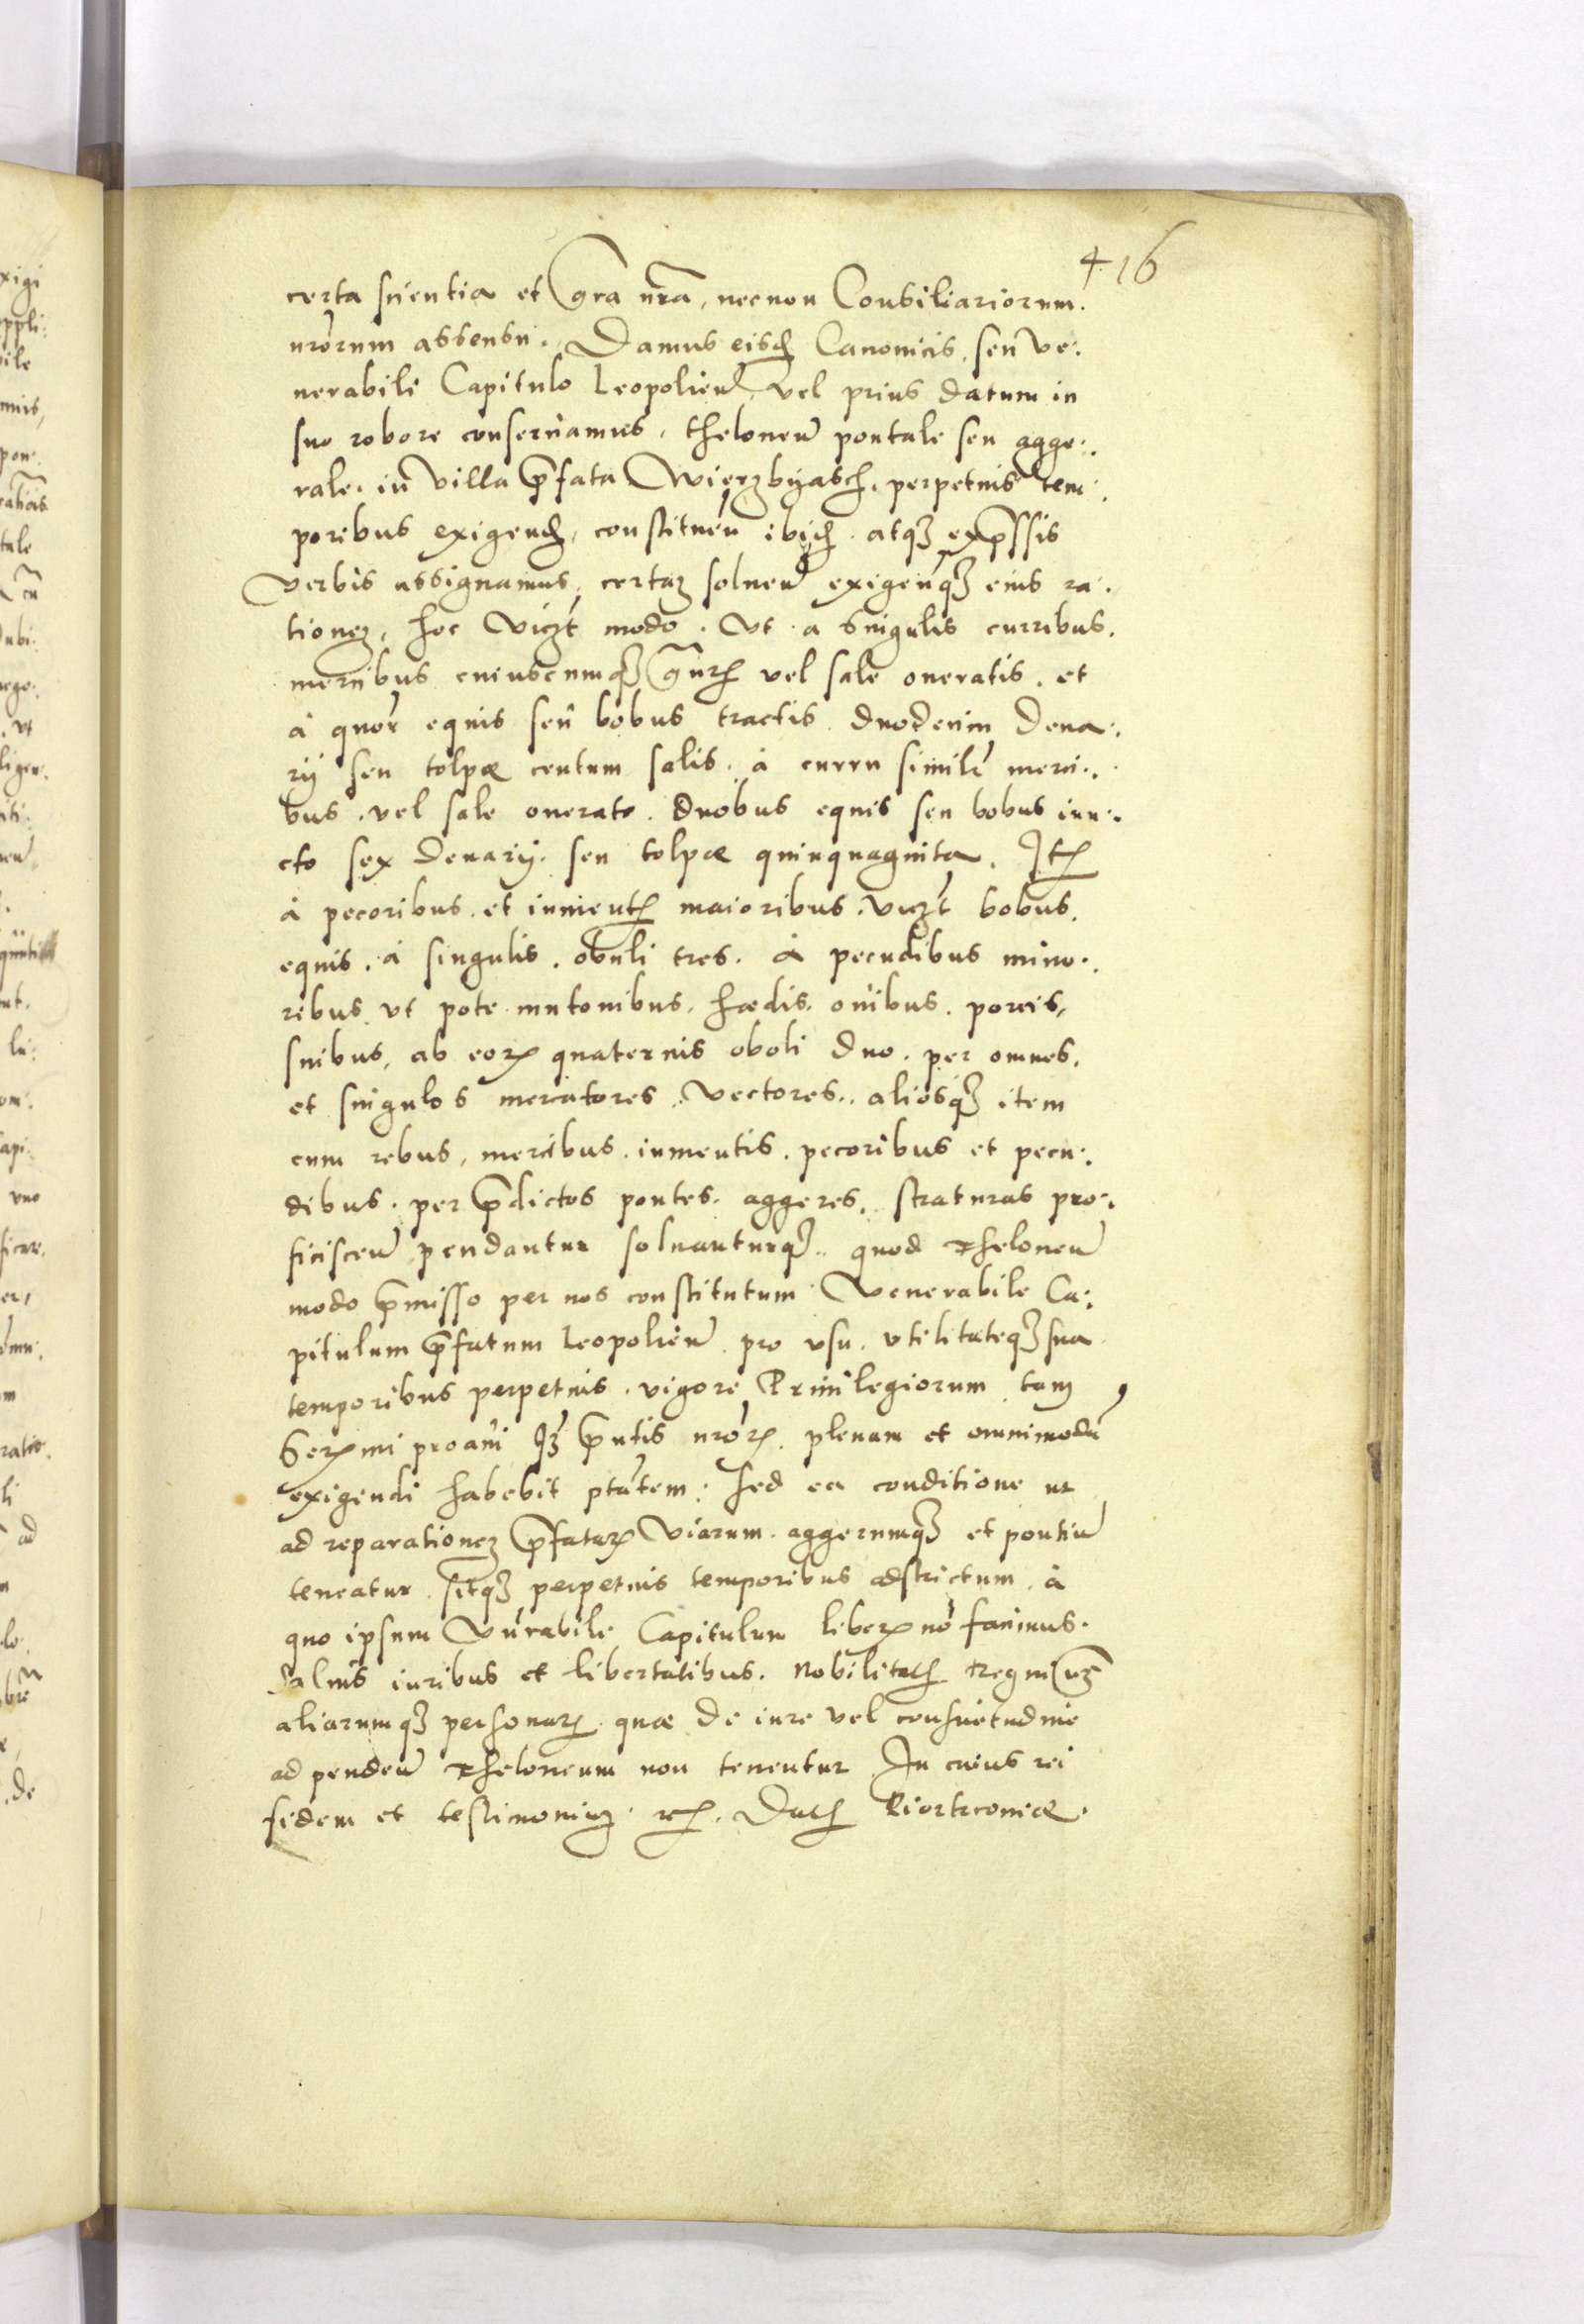 416
certa scientia et gra nra, necnon Consiliariorum
nrorum assensu. Damus eisd Canonicis, seu ve:
nerabili Capitulo Leopolien, vel prius datum in
suo robore conseruamus, theloneu pontale seu agge:
rale, in Villa pfata Wierzbyasch, perpetuis tem:
poribus exigend, constituen ibid. atq3 expssis
verbis assignamus, certaz soluen exigenq3 eius ra:
tionez, hoc viczt modo. Vt a singulis curribus,
mercibus cuiuscumq3 gnris vel sale oneratis, et
à quor equis seu bobus tractis duodecim Dena:
rij seu tolpæ centum salis. à curru simili merci:
bus, vel sale onerato, duobus equis seu bobus iun:
cto sex Denarij. seu tolpæ quinquaginta. Itē
à pecoribus et iumentis maioribus, viczt bobus,
equis, à singulis, oboli tres. A pecudibus mino:
ribus, vt pote mutonibus, hædis, ouibus, porcis,
suibus, ab eorum quaternis oboli duo. per omnes,
et singulos mercatores, vectores, aliosq3 item
cum rebus, mercibus, iumentis, pecoribus et pecu:
dibus, per pdictos pontes, aggeres, straturas pro:
ficiscen pendantur soluanturq3, quod Theloneu
modo pmisso per nos constitutum Venerabile Ca:
pitulum pfatum Leopolien pro vsu, vtilitateq3 sua
temporibus perpetuis, vigore Priuilegiorum tam
Sermi proaui qz pntis nror, plenam et omnimodā
exigendi habebit ptatem: sed ea conditione ut
ad reparationez pfatar viarum, aggerumq3 et pontiu
teneatur, sitq3 perpetuis temporibus adstrictum, à
quo ipsum Vnrabile Capitulum liber nō facimus.
Saluis iuribus et libertatibus, Nobilitatis Regni
aliarumq3 personar, quæ de iure vel consuetudine
ad penden Theloneum non tenentur. In cuius rei
fidem et testimoniuz etc. Dat Piortrconiæ.